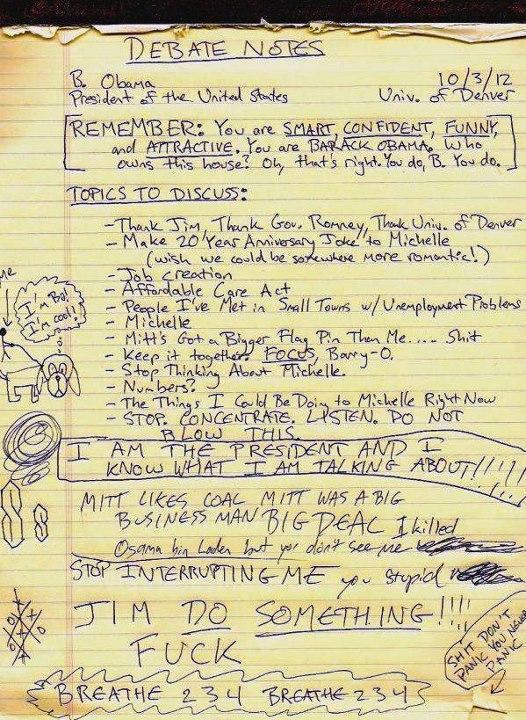 DEBATE NOTES
B. Obama 10/3/12
President of the United States Univ. of Denver
REMEMBER: You are SMART, CONFIDENT, FUNNY,
and ATTRACTIVE. You are BARACK OBAMA. Who
owns this house? Oh, that's right. You do, B. You do.
TOPICS TO DISCUSS:
- Thank Jim, Thank Gov. Romney, Thank Univ. of Denver
- Make 20 Year Anniversary Joke to Michelle
(wish we could be somewhere more romantic!)
- Job creation
- Affordable Care Act
- People I've Met in Small Towns w/ Unemployment Problems
- Michelle
- Mitt's Got a Bigger Flag Pin Than Me.... Shit
- Keep it together, FOCUS, Barry-O.
- Stop Thinking About Michelle.
- Numbers?
- The Things I Could Be Doing to Michelle Right Now
- STOP. CONCENTRATE. LISTEN. DO NOT
BLOW THIS.
me
I'm Bo!
I'm cool!
I AM THE PRESIDENT AND I
KNOW WHAT I AM TALKING ABOUT!!!!!
MITT LIKES COAL MITT WAS A BIG
BUSINESS MAN BIG DEAL I killed
Osama bin Laden but you don't see me
STOP INTERRUPTING ME you stupid
JIM DO SOMETHING!!!!
FUCK
SHIT DON'T
PANIC YOU NEVER
PANIC
BREATHE 2 3 4 BREATHE 2 3 4